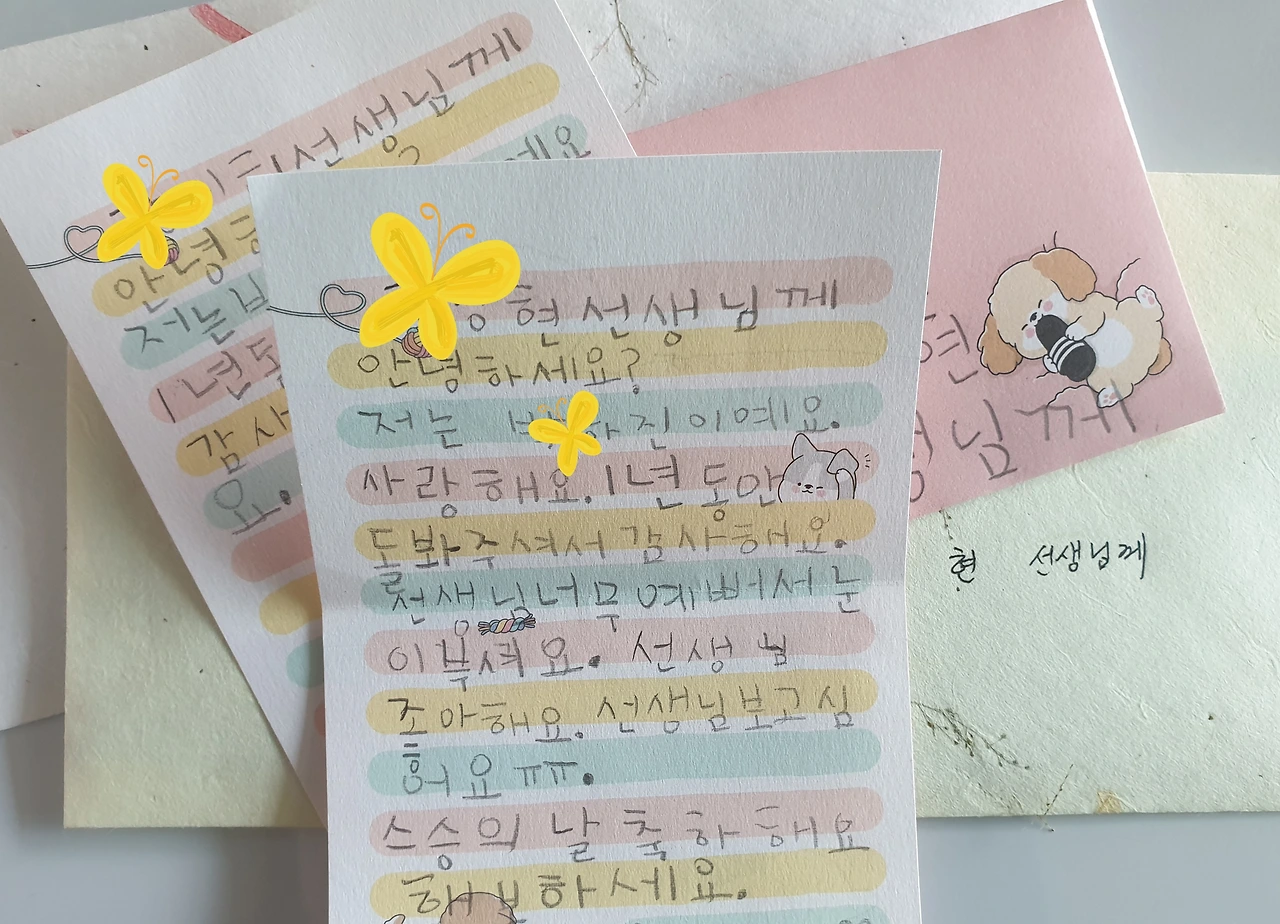 선생님께
안녕
저는
1년동
감사
요.
예요
현선생님께
안녕하세요?
저는 진이예요.
사랑해요.1년동안
돌봐주셔서 감사해요.
선생님너무 예뻐서눈
이부셔요. 선생님
조아해요. 선생님보고십
흐어요ㅠㅠ.
스승의 날 축하해요
행보하세요.
현
님께
현 선생님께